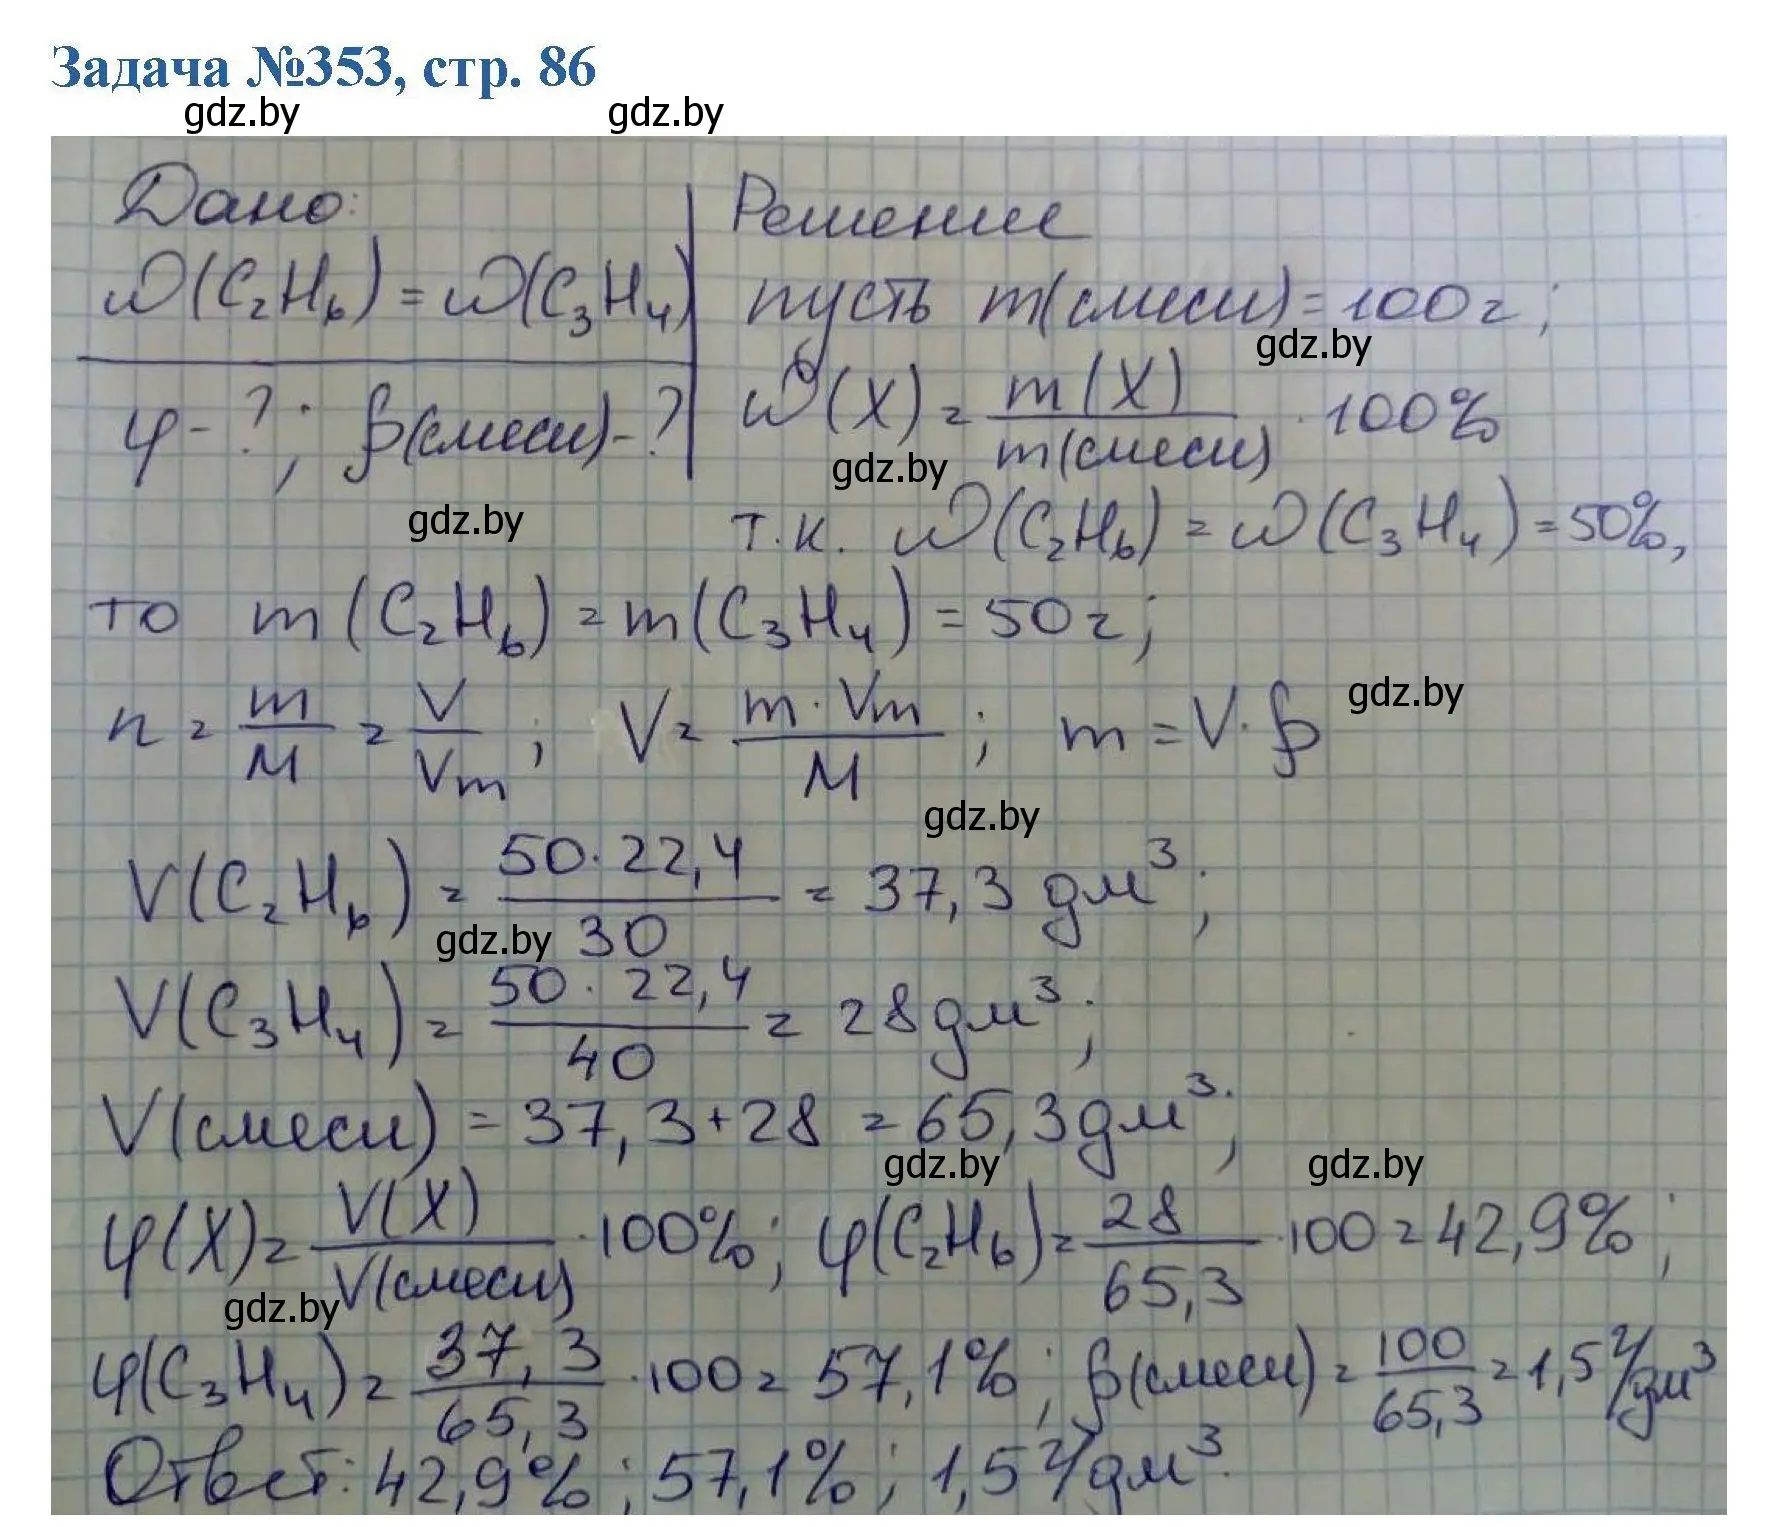 Задача №353, стр. 86
gdz.by gdz.by
Дано: Решение
ω(C₂H₆) = ω(C₃H₄) пусть m(смеси) = 100 г;
gdz.by
φ - ?; ρ(смеси) - ? ω(X) = m(X) / m(смеси) · 100%
gdz.by
gdz.by
т.к. ω(C₂H₆) = ω(C₃H₄) = 50%,
то m(C₂H₆) = m(C₃H₄) = 50 г;
n = m/M = V/Vm; V = m · Vm / M; m = V · ρ
gdz.by
gdz.by
V(C₂H₆) = 50 · 22,4 / 30 = 37,3 дм³;
gdz.by
V(C₃H₄) = 50 · 22,4 / 40 = 28 дм³;
V(смеси) = 37,3 + 28 = 65,3 дм³;
gdz.by gdz.by
φ(X) = V(X) / V(смеси) · 100%; φ(C₂H₆) = 28 / 65,3 · 100 = 42,9%;
gdz.by
φ(C₃H₄) = 37,3 / 65,3 · 100 = 57,1%; ρ(смеси) = 100 / 65,3 = 1,5 г/дм³
Ответ: 42,9%; 57,1%; 1,5 г/дм³.